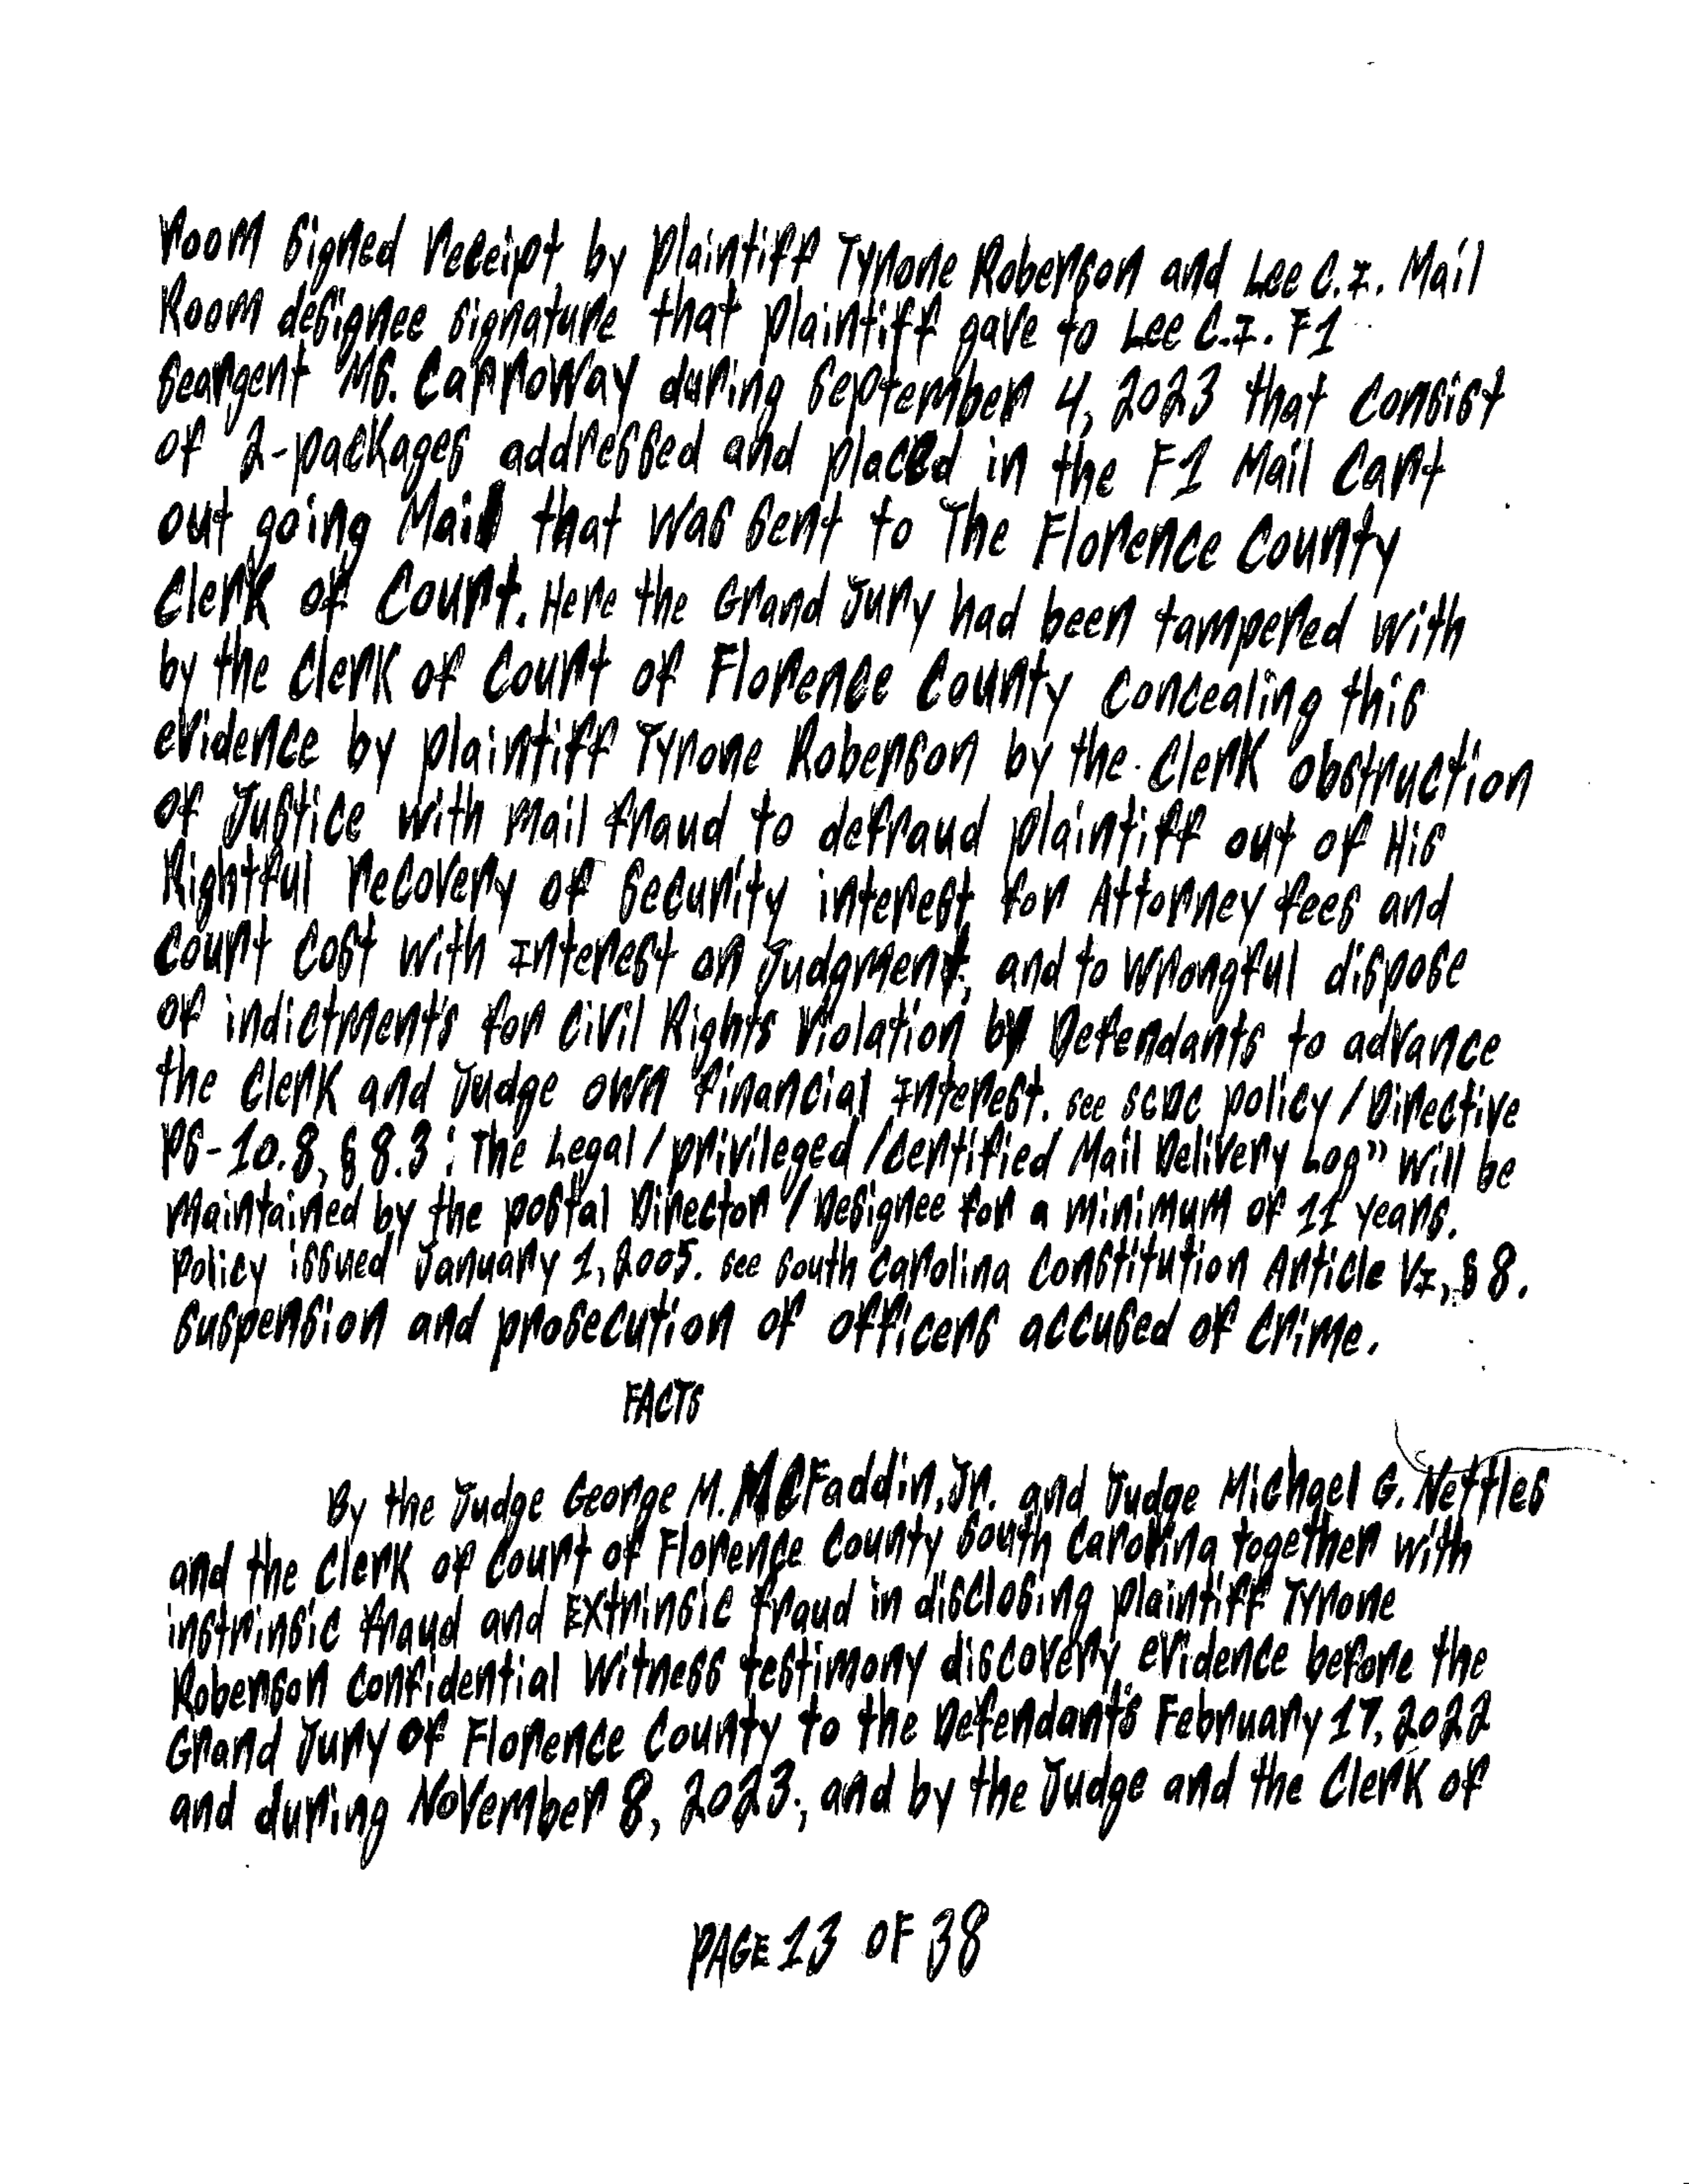 room signed receipt by plaintiff Tyrone Roberson and Lee C.I. Mail
Room designee signature that plaintiff gave to Lee C.I. F1
Seargent Ms. Carroway during September 4, 2023 that consist
of 2-packages addressed and placed in the F1 Mail Cart
out going Mail that was sent to The Florence County
Clerk of Court. Here the Grand Jury had been tampered with
by the Clerk of Court of Florence County concealing this
evidence by plaintiff Tyrone Roberson by the Clerk obstruction
of Justice with mail fraud to defraud plaintiff out of His
Rightful recovery of security interest for Attorney fees and
court cost with Interest on Judgment, and to wrongful dispose
of indictment's for Civil Rights Violation by Defendants to advance
the Clerk and Judge own financial Interest. see SCDC policy/Directive
PS-10.8, § 8.3: The Legal/privileged/certified Mail Delivery Log" will be
Maintained by the postal Director/Designee for a minimum of 11 years.
Policy issued January 1, 2005. see South Carolina Constitution Article VI, § 8.
Suspension and prosecution of officers accused of crime.
FACTS
By the Judge George M. McFaddin, Jr. and Judge Michael G. Nettles
and the Clerk of Court of Florence County South Carolina together with
instrinsic fraud and Extrinsic fraud in disclosing plaintiff Tyrone
Roberson confidential Witness testimony discovery evidence before the
Grand Jury of Florence County to the Defendant's February 17, 2022
and during November 8, 2023; and by the Judge and the Clerk of
PAGE 13 OF 38